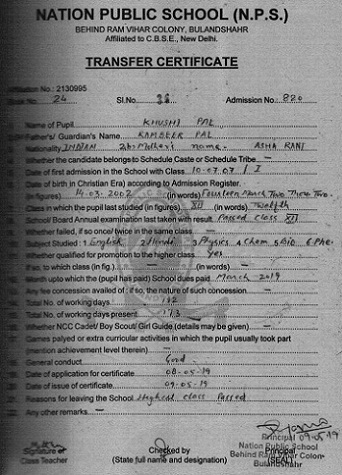 NATION PUBLIC SCHOOL (N.P.S.)
BEHIND RAM VIHAR COLONY, BULANDSHAHR
Affiliated to C.B.S.E., New Delhi.
TRANSFER CERTIFICATE
Affiliation No.: 2130995
Book No. 24 Sl.No. Admission No.: 820
Name of Pupil KHUSHI PAL
Father's/ Guardian's Name RAMBEER PAL
Nationality INDIAN 2b) Mother's name - ASHA RANI
Whether the candidate belongs to Schedule Caste or Schedule Tribe —
Date of first admission in the School with Class 10-07-07 / I
Date of birth in Christian Era) according to Admission Register.
(in figures) 14-03-2002 (in words) Fourteen March Two Thou Two
Class in which the pupil last studied (in figures) XII (in words) Twelfth
School/ Board Annual examination last taken with result Passed class XII
Whether failed, if so once/ twice in the same class —
Subject Studied : 1 English 2 Hindi 3 Physics 4 Chem 5 Bio 6 Phe.
Whether qualified for promotion to the higher class Yes
If so, to which class (in fig.) — (in words) —
Month upto which the (pupil has paid) School dues paid March 2019
Any fee concession availed of : if so, the nature of such concession —
Total No. of working days 192
Total No. of working days present 173
Whether NCC Cadet/ Boy Scout/ Girl Guide (details may be given) —
Games palyed or extra curricular activities in which the pupil usually took part
(mention achievement level therein) —
General conduct Good
Date of application for certificate 08-05-19
Date of issue of certificate 09-05-19
Reasons for leaving the School Highest class Passed
Any other remarks —
Principal 09-05-19
Nation Public School
Signature of Checked by Behind Ram Vihar Colony
Class Teacher (State full name and designation) (SEAL)
Bulandshahr